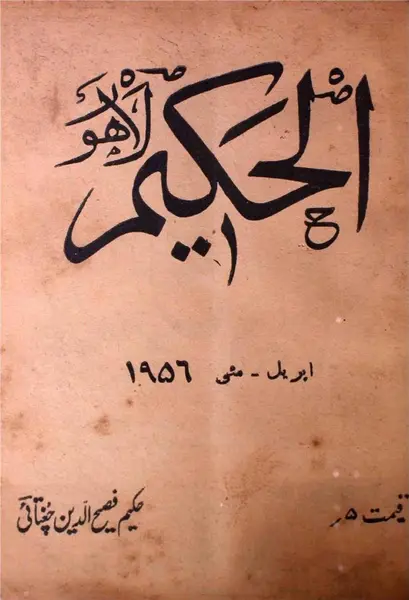 الحکیم
لاہور
اپریل - مئی ۱۹۵۶
قیمت ۵ر
حکیم فصیح الدین چغتائی